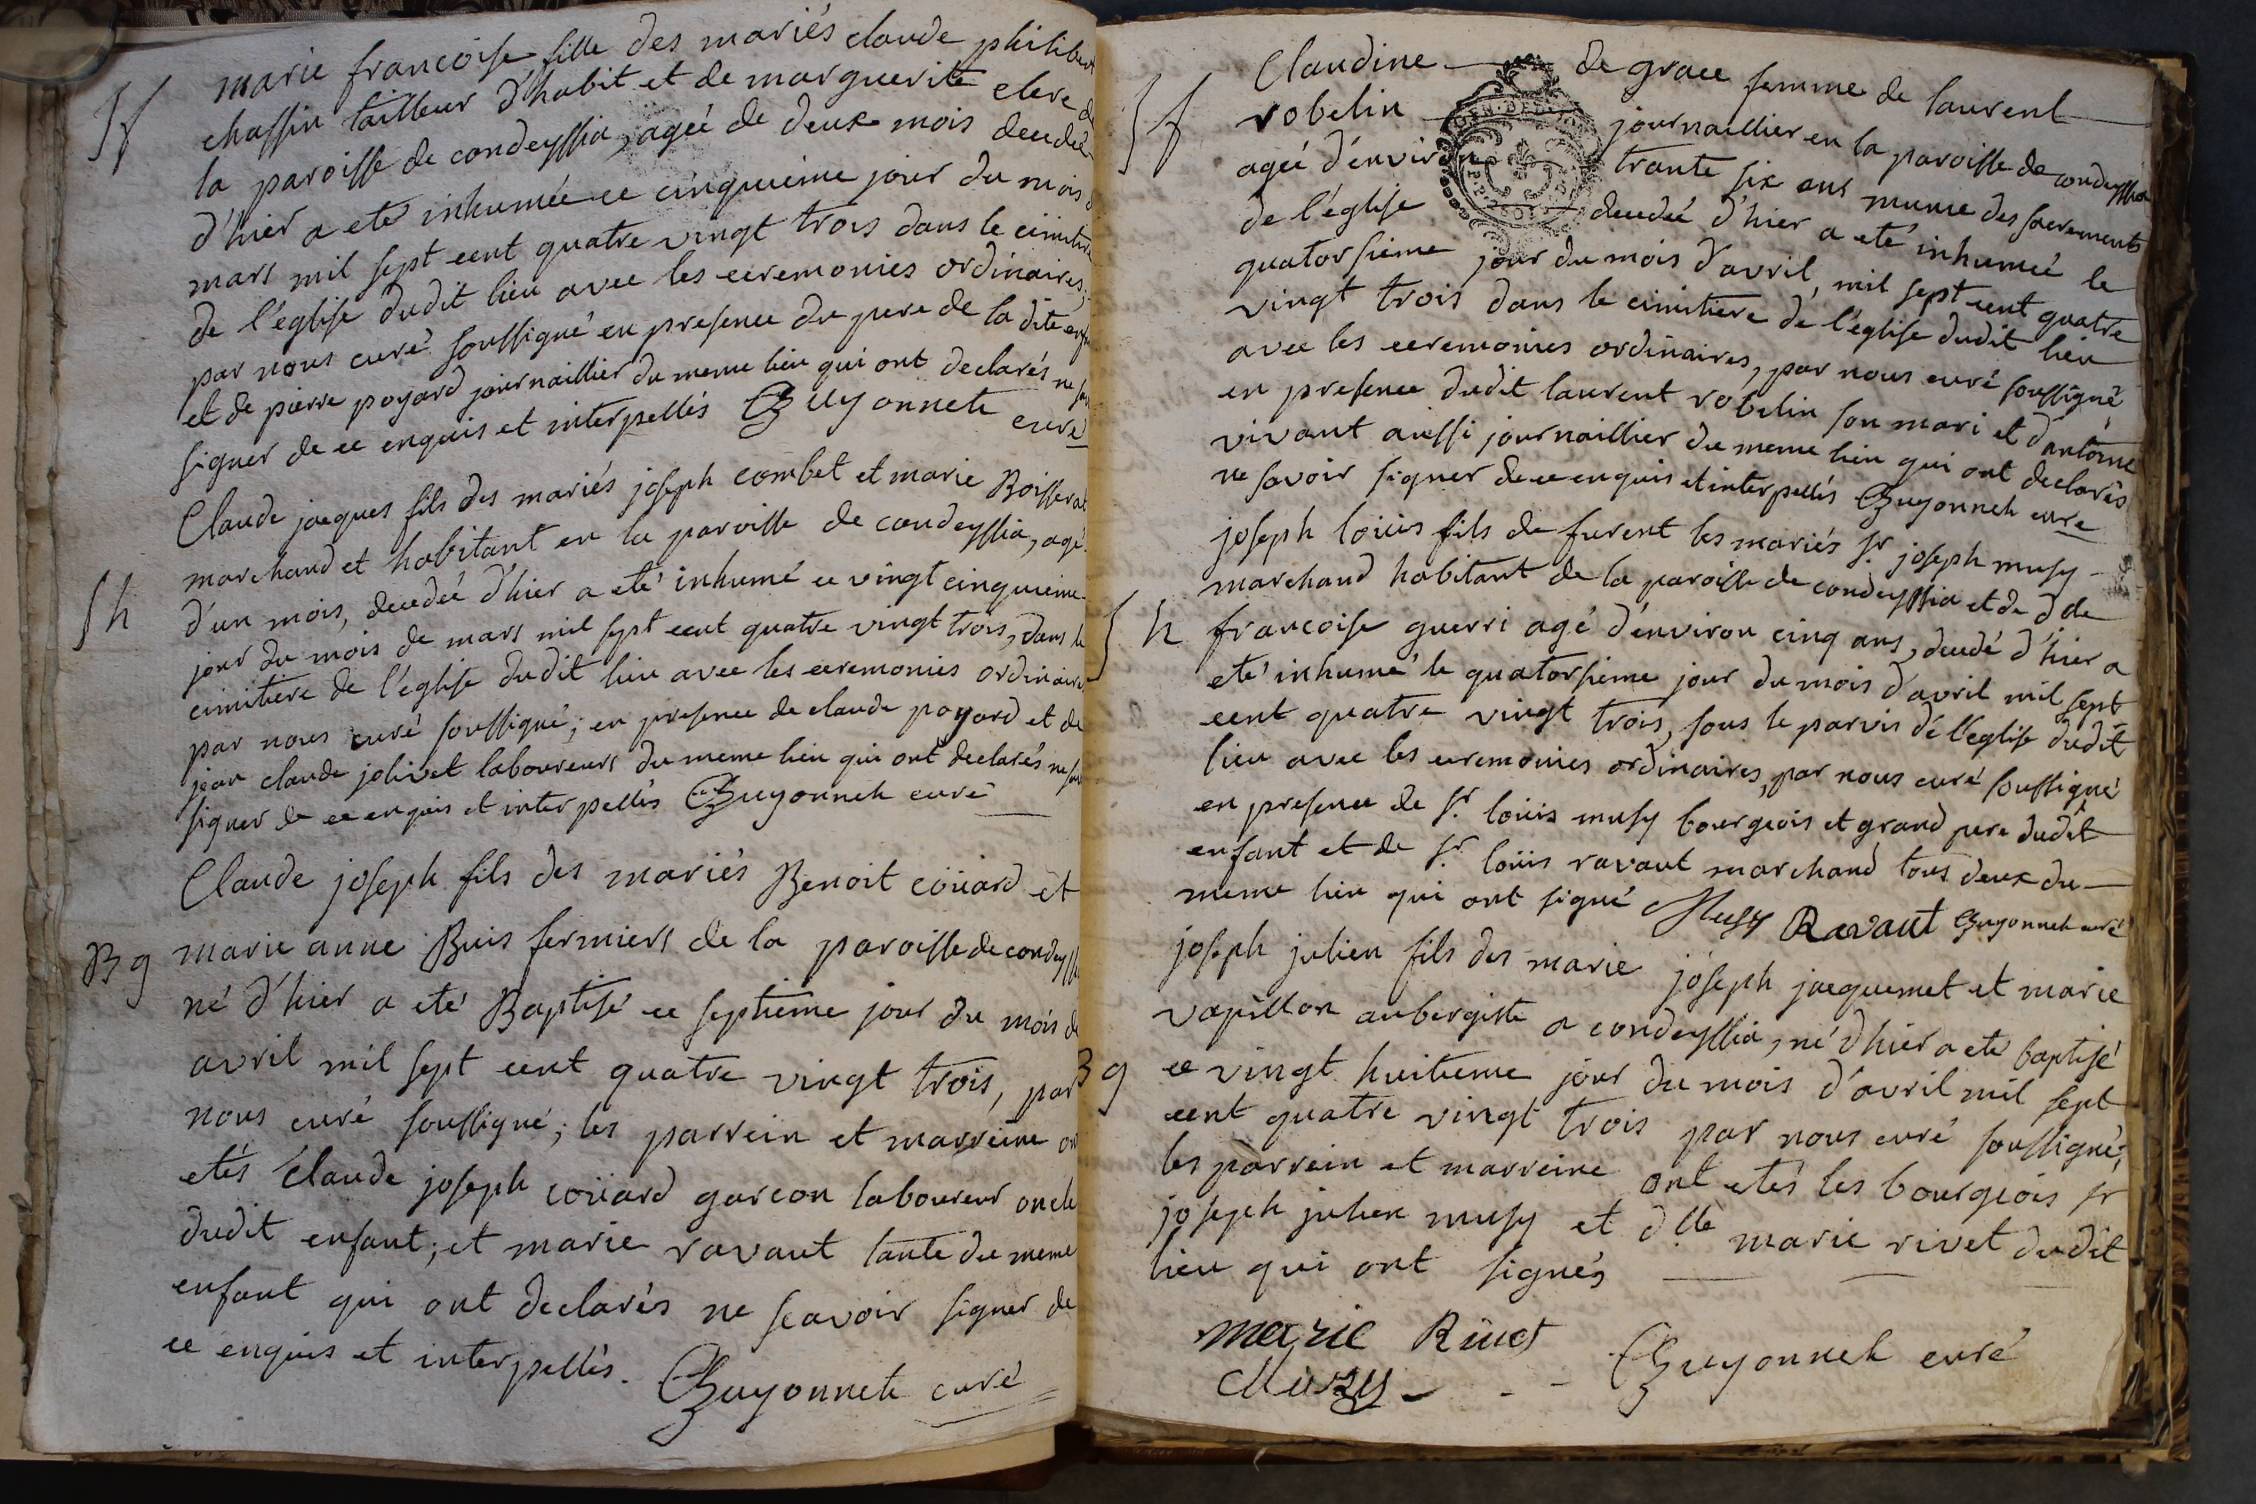 marie francoise fille des mariés claude philibert
Sf
chaffin tailleur d'habit et de marguerite clere de
la paroisse de condeyssia, ageé de deux mois decedeé
d'hier a eté inhumée ce cinquieme jour du mois d
mars mil sept cent quatre vingt trois dans le cimitiere
de l'eglise dudit lieu avec les ceremonies ordinaires,
par nous curé soussigné en presence du pere de la dite enfan
et de pierre poyard journaillier du meme lieu qui ont declarés ne sav
signer de ce enquis et interpellés Guyonneth curé
Claude jacques fils des mariés joseph combet et marie Boisserat
marchand et habitant en la paroisse de condeyssia, agé
Sh
d'un mois, decedeé d'hier a eté inhumé ce vingt cinquieme
jour du mois de mars mil sept cent quatre vingt trois, dans le
cimitiere de l'eglise dudit lieu avec les ceremonies ordinaires
par nous curé soussigné; en presence de claude poyard et de
jean claude jolivet laboureurs du meme lieu qui ont declarés ne sav
signer de ce enquis et interpellés Guyonneth curé
Claude joseph fils des mariés Benoit coüard et
Bg
marie anne Buis fermiers de la paroisse de condeyssi
né d'hier a eté Baptisé ce septieme jour du mois de
avril mil sept cent quatre vingt trois, par
nous curé soussigné; les parrein et marreine on
etés Claude joseph coüard garcon laboureur oncle
dudit enfant; et marie ravaut tante du meme
enfant qui ont declarés ne scavoir signer de
ce enquis et interpellés. Guyonneth curé
Claudine de grace femme de laurent
Sf
robelin journaillier en la paroisse de condeyssia
ageé d'environ trante six ans munie des sacrements
de l'église decedeé d'hier a eté inhumeé le
quatorsieme jour du mois d'avril, mil sept cent quatre
vingt trois dans le cimitiere de l'église dudit lieu
avec les ceremonies ordinaires, par nous curé soussigné
en presence dudit laurent robelin son mari et d'antoine
vivant aussi journaillier du meme lieu qui ont declarés
ne savoir signer de ce enquis et interpellés Guyonneth curé
joseph loüis fils de furent les mariés sr joseph musy
marchand habitant de la paroisse de condeyssia et de dde
Sh
francoise guerri agé d'environ cinq ans, decedé d'hier a
eté inhumé le quatorsieme jour du mois d'avril mil sept
cent quatre vingt trois, sous le parvis de l'eglise dudit
lieu avec les ceremonies ordinaires, par nous curé soussigné
en presence de sr. loüis musy bourgeois et grand pere dudit
enfant et de sr. loüis ravaut marchand tous deux du
meme lieu qui ont signé Musy Ravaut Guyonneth curé
joseph julien fils des marie joseph jacquemet et marie
vapillon aubergiste a condeyssia, né d'hier a eté baptisé
Bg
ce vingt huitieme jour du mois d'avril mil sept
cent quatre vingt trois par nous curé soussigné;
les parrein et marreine ont etés les bourgeois sr
joseph julien musy et dlle marie rivet dudit
lieu qui ont signés
marie Rivet
Musy Guyonneth curé